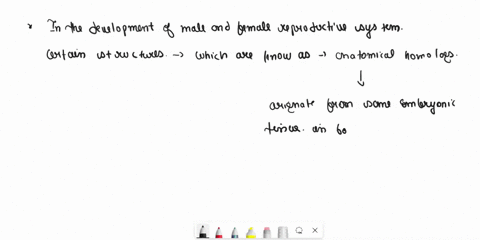 * In the development of male and female reproductive system.
Certain structures. → which are know as → anatomical homologs.
↓
origenate from some Embryonic
tissue. in bo